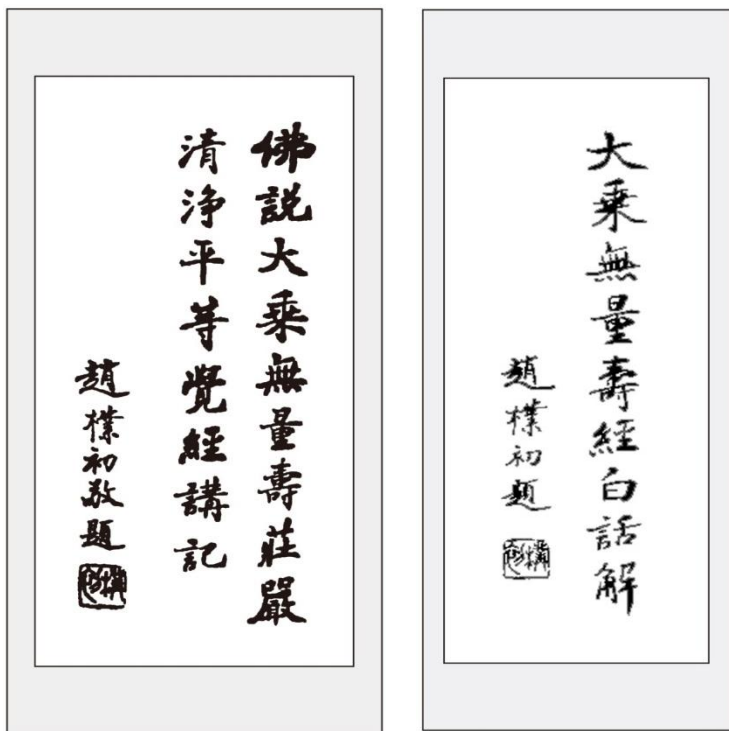 佛説大乘無量壽莊嚴
清浄平等覺經講記
趙樸初敬題
大乘無量壽經白話解
趙樸初題